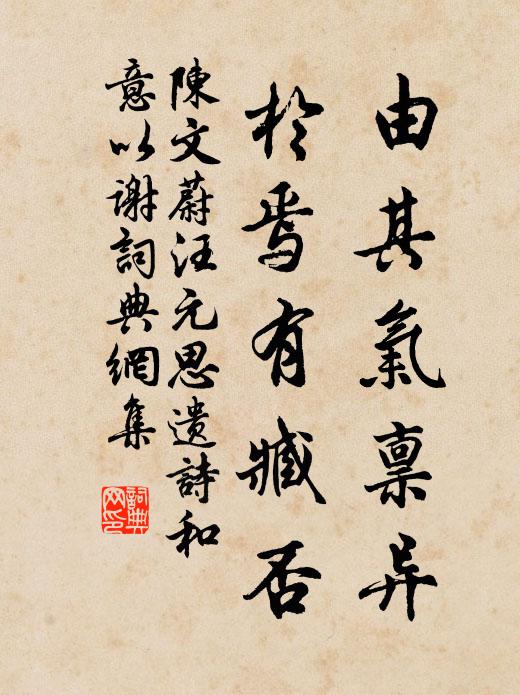 由其氣禀异
於焉有臧否
陳文蔚汪元思遺詩和
意以谢詞典網集
詞典
网印